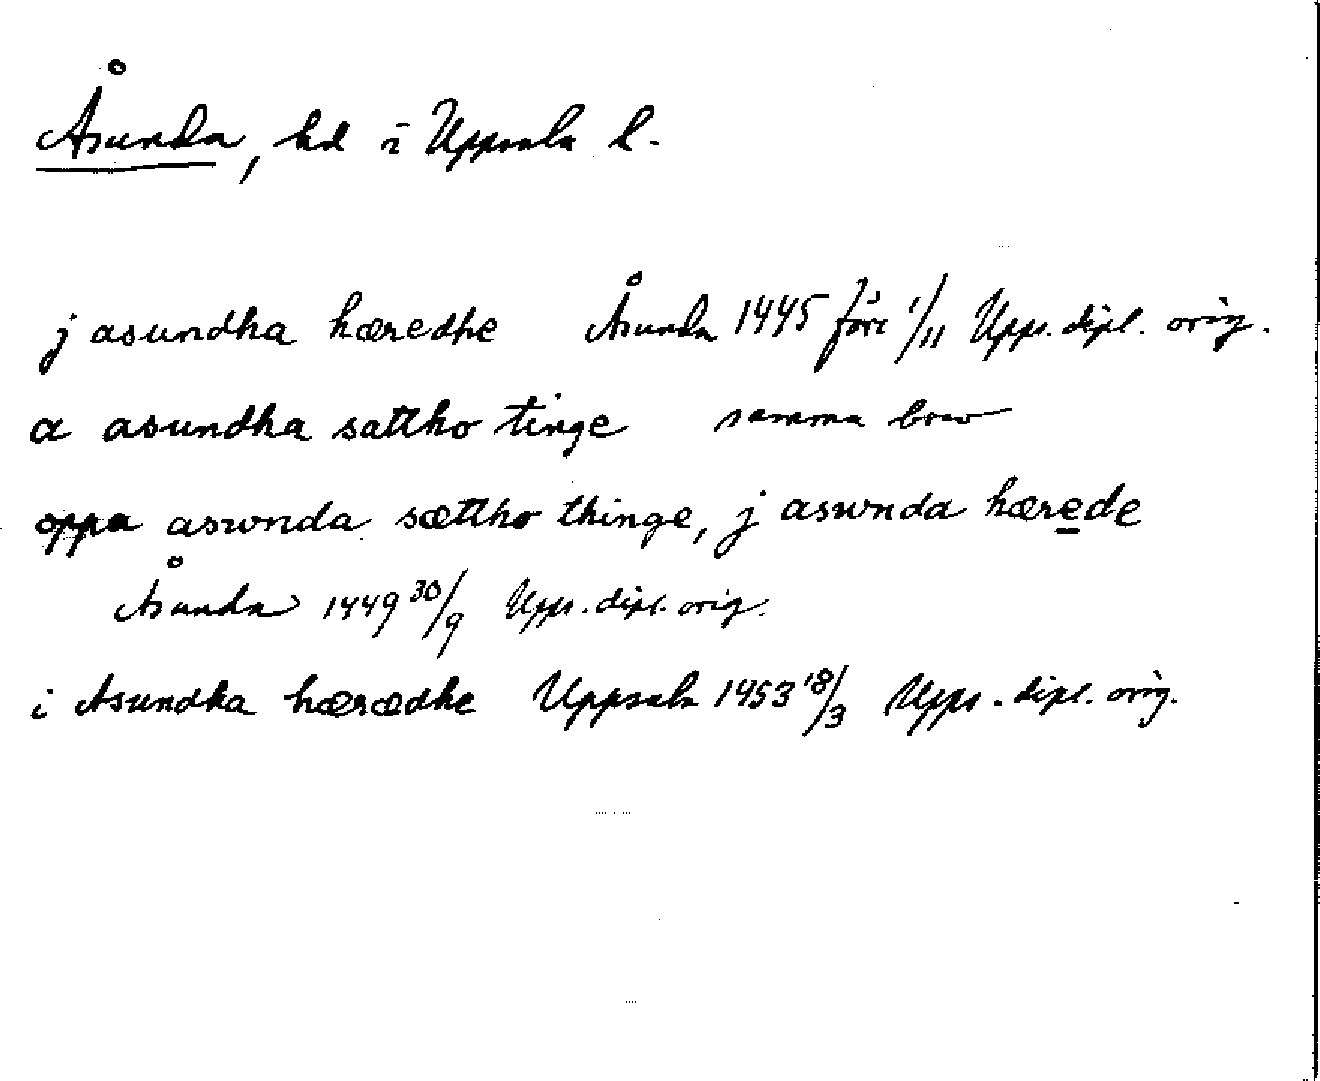 Åsunda, hd i Uppsala l.
j asundha hæredhe Åsunda 1445 före 1/11 Upps. dipl. orig.
a asundha sattho tinge samma brev
oppa aswnda sættho thinge, j aswnda hærede
Åsunda 1449 30/9 Upps. dipl. orig.
i Asundha hærædhe Uppsala 1453 18/3 Upps. dipl. orig.